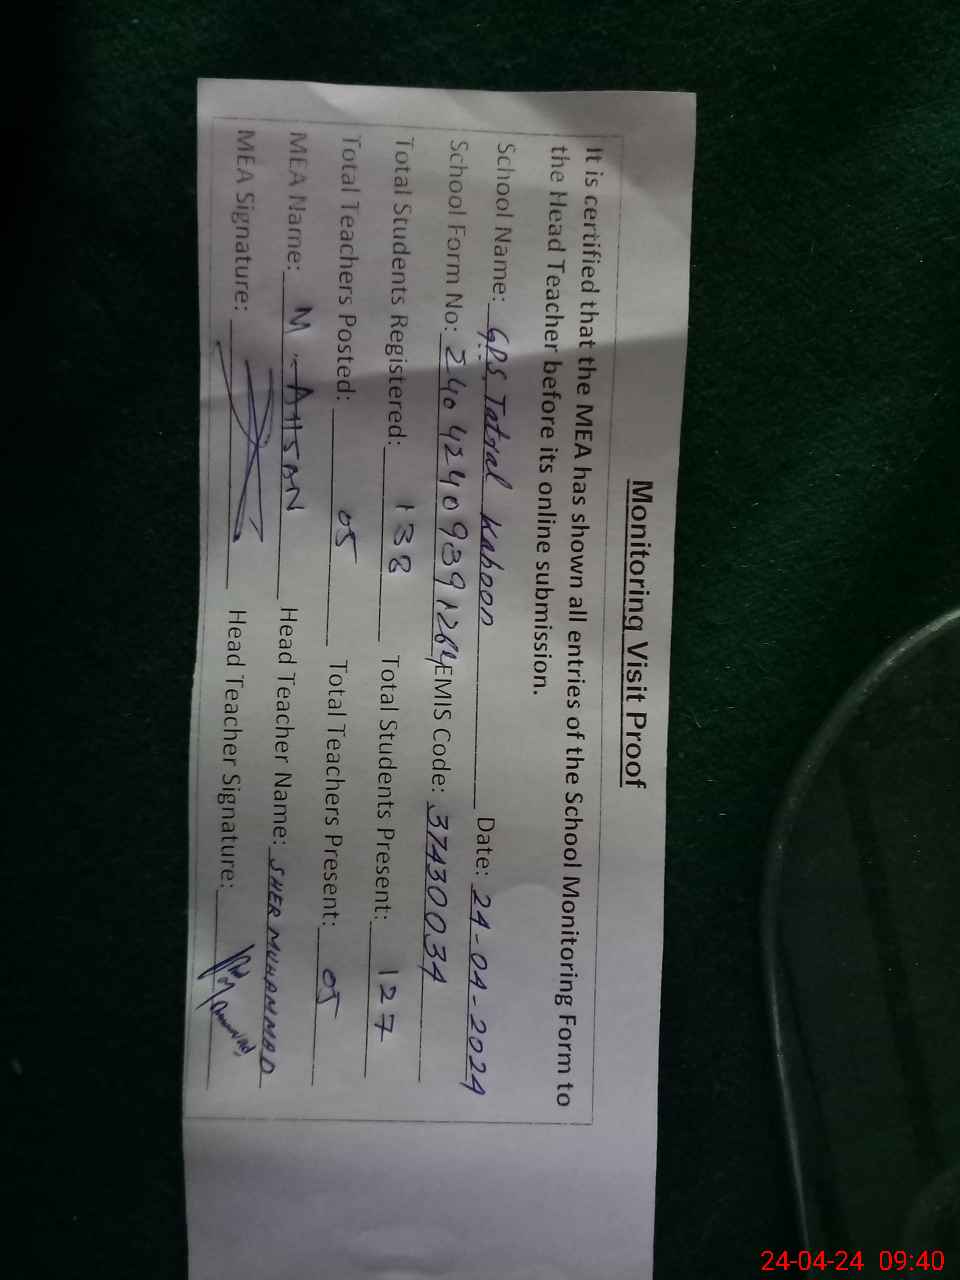 Monitoring Visit Proof
It is certified that the MEA has shown all entries of the School Monitoring Form to
the Head Teacher before its online submission.
School Name: GPS Tatral Kahoon Date: 24-04-2024
School Form No: 240424409391264 EMIS Code: 37430034
Total Students Registered: 138 Total Students Present: 127
Total Teachers Posted: 05 Total Teachers Present: 05
MEA Name: M. AHSAN Head Teacher Name: SHER MUHAMMAD
MEA Signature: Head Teacher Signature:
24-04-24 09:40